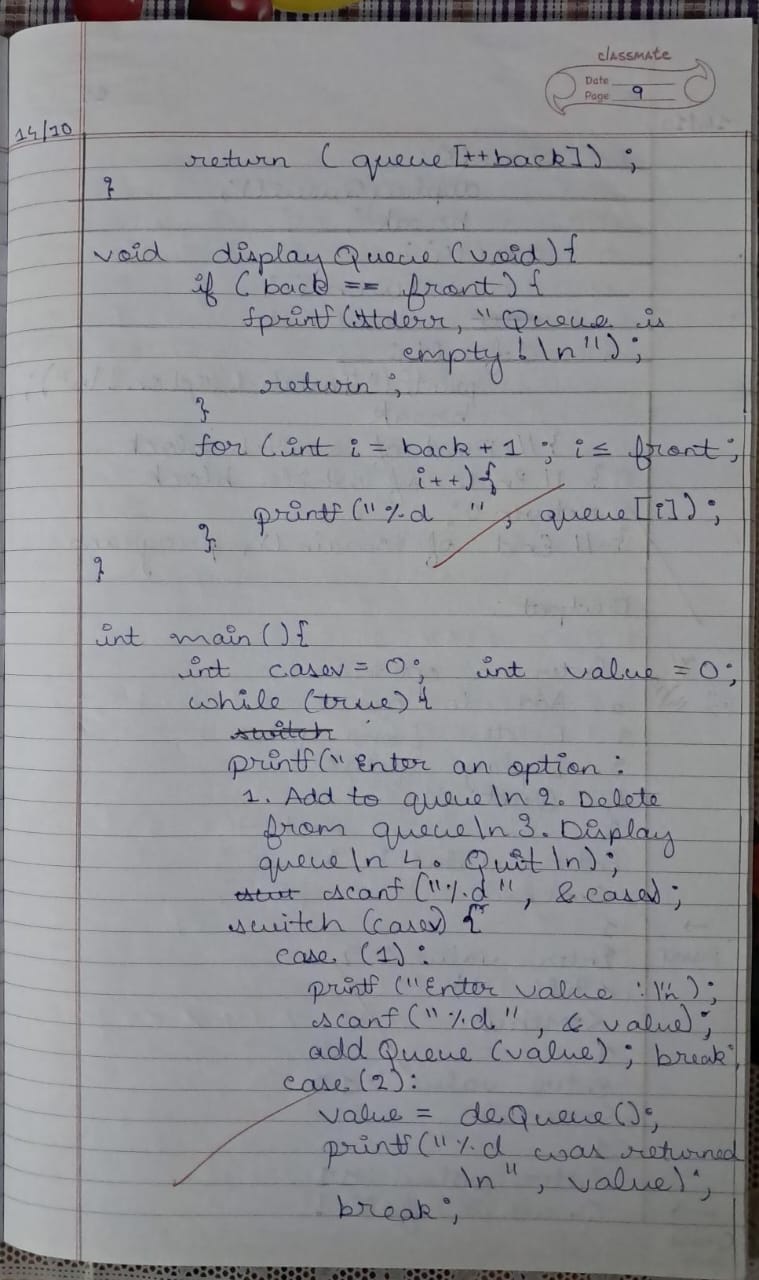 classmate
Date
Page 9
14/10
return (queue[++back]);
}
void displayQueue(void){
if (back == front){
fprintf(stderr, "Queue is
empty!\n");
return;
}
for (int i = back + 1; i ≤ front;
i++){
printf("%d ", queue[i]);
}
}
int main(){
int casev = 0; int value = 0;
while (true){
switch
printf("Enter an option:
1. Add to queue\n 2. Delete
from queue\n 3. Display
queue\n 4. Quit\n);
scanf("%d", &casev);
switch (casev) {
case (1):
printf("Enter value :\n");
scanf("%d", &value);
addQueue(value); break;
case(2):
value = deQueue();
printf("%d was returned
\n", value);
break;